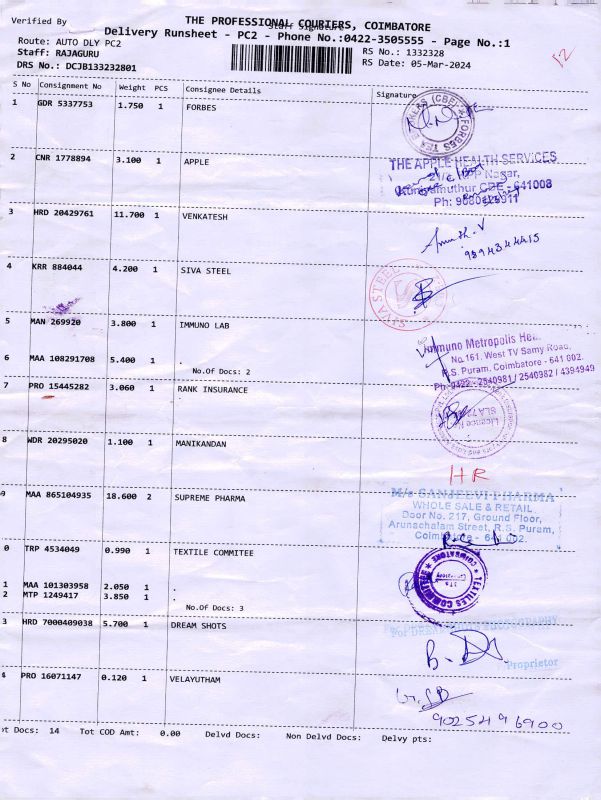 Verified By
THE PROFESSIONAL COURIERS, COIMBATORE
Delivery Runsheet - PC2 - Phone No.:0422-3505555 - Page No.:1
Route: AUTO DLY PC2
Staff: RAJAGURU
RS No.: 1332328
DRS No.: DCJB133232801
RS Date: 05-Mar-2024
12
S No Consignment No Weight PCS Consignee Details Signature
1 GDR 5337753 1.750 1 FORBES
2 CNR 1778894 3.100 1 APPLE
THE APPLE HEALTH SERVICES
Nagar,
641008
Ph:
3 HRD 20429761 11.700 1 VENKATESH
4 KRR 884044 4.200 1 SIVA STEEL
SIVA STEEL
5 MAN 269920 3.800 1 IMMUNO LAB
Immuno Metropolis
No.161, West TV Samy Road,
R.S. Puram, Coimbatore - 641 002.
Ph:0422 - 2540981 / 2540982 / 4394949
6 MAA 108291708 5.400 1 .
No.Of Docs: 2
7 PRO 15445282 3.060 1 RANK INSURANCE
8 WDR 20295020 1.100 1 MANIKANDAN
HR
9 MAA 865104935 18.600 2 SUPREME PHARMA
M/s SANJEEVI PHARMA
WHOLE SALE & RETAIL
Door No. 217, Ground Floor,
Arunachalam Street, R.S. Puram,
Coimbatore - 641 002.
0 TRP 4534049 0.990 1 TEXTILE COMMITEE
1 MAA 101303958 2.050 1 .
2 MTP 1249417 3.850 1 .
No.Of Docs: 3
3 HRD 7000409038 5.700 1 DREAM SHOTS
Proprietor
4 PRO 16071147 0.120 1 VELAYUTHAM
9025496900
Docs: 14 Tot COD Amt: 0.00 Delvd Docs: Non Delvd Docs: Delvy pts: